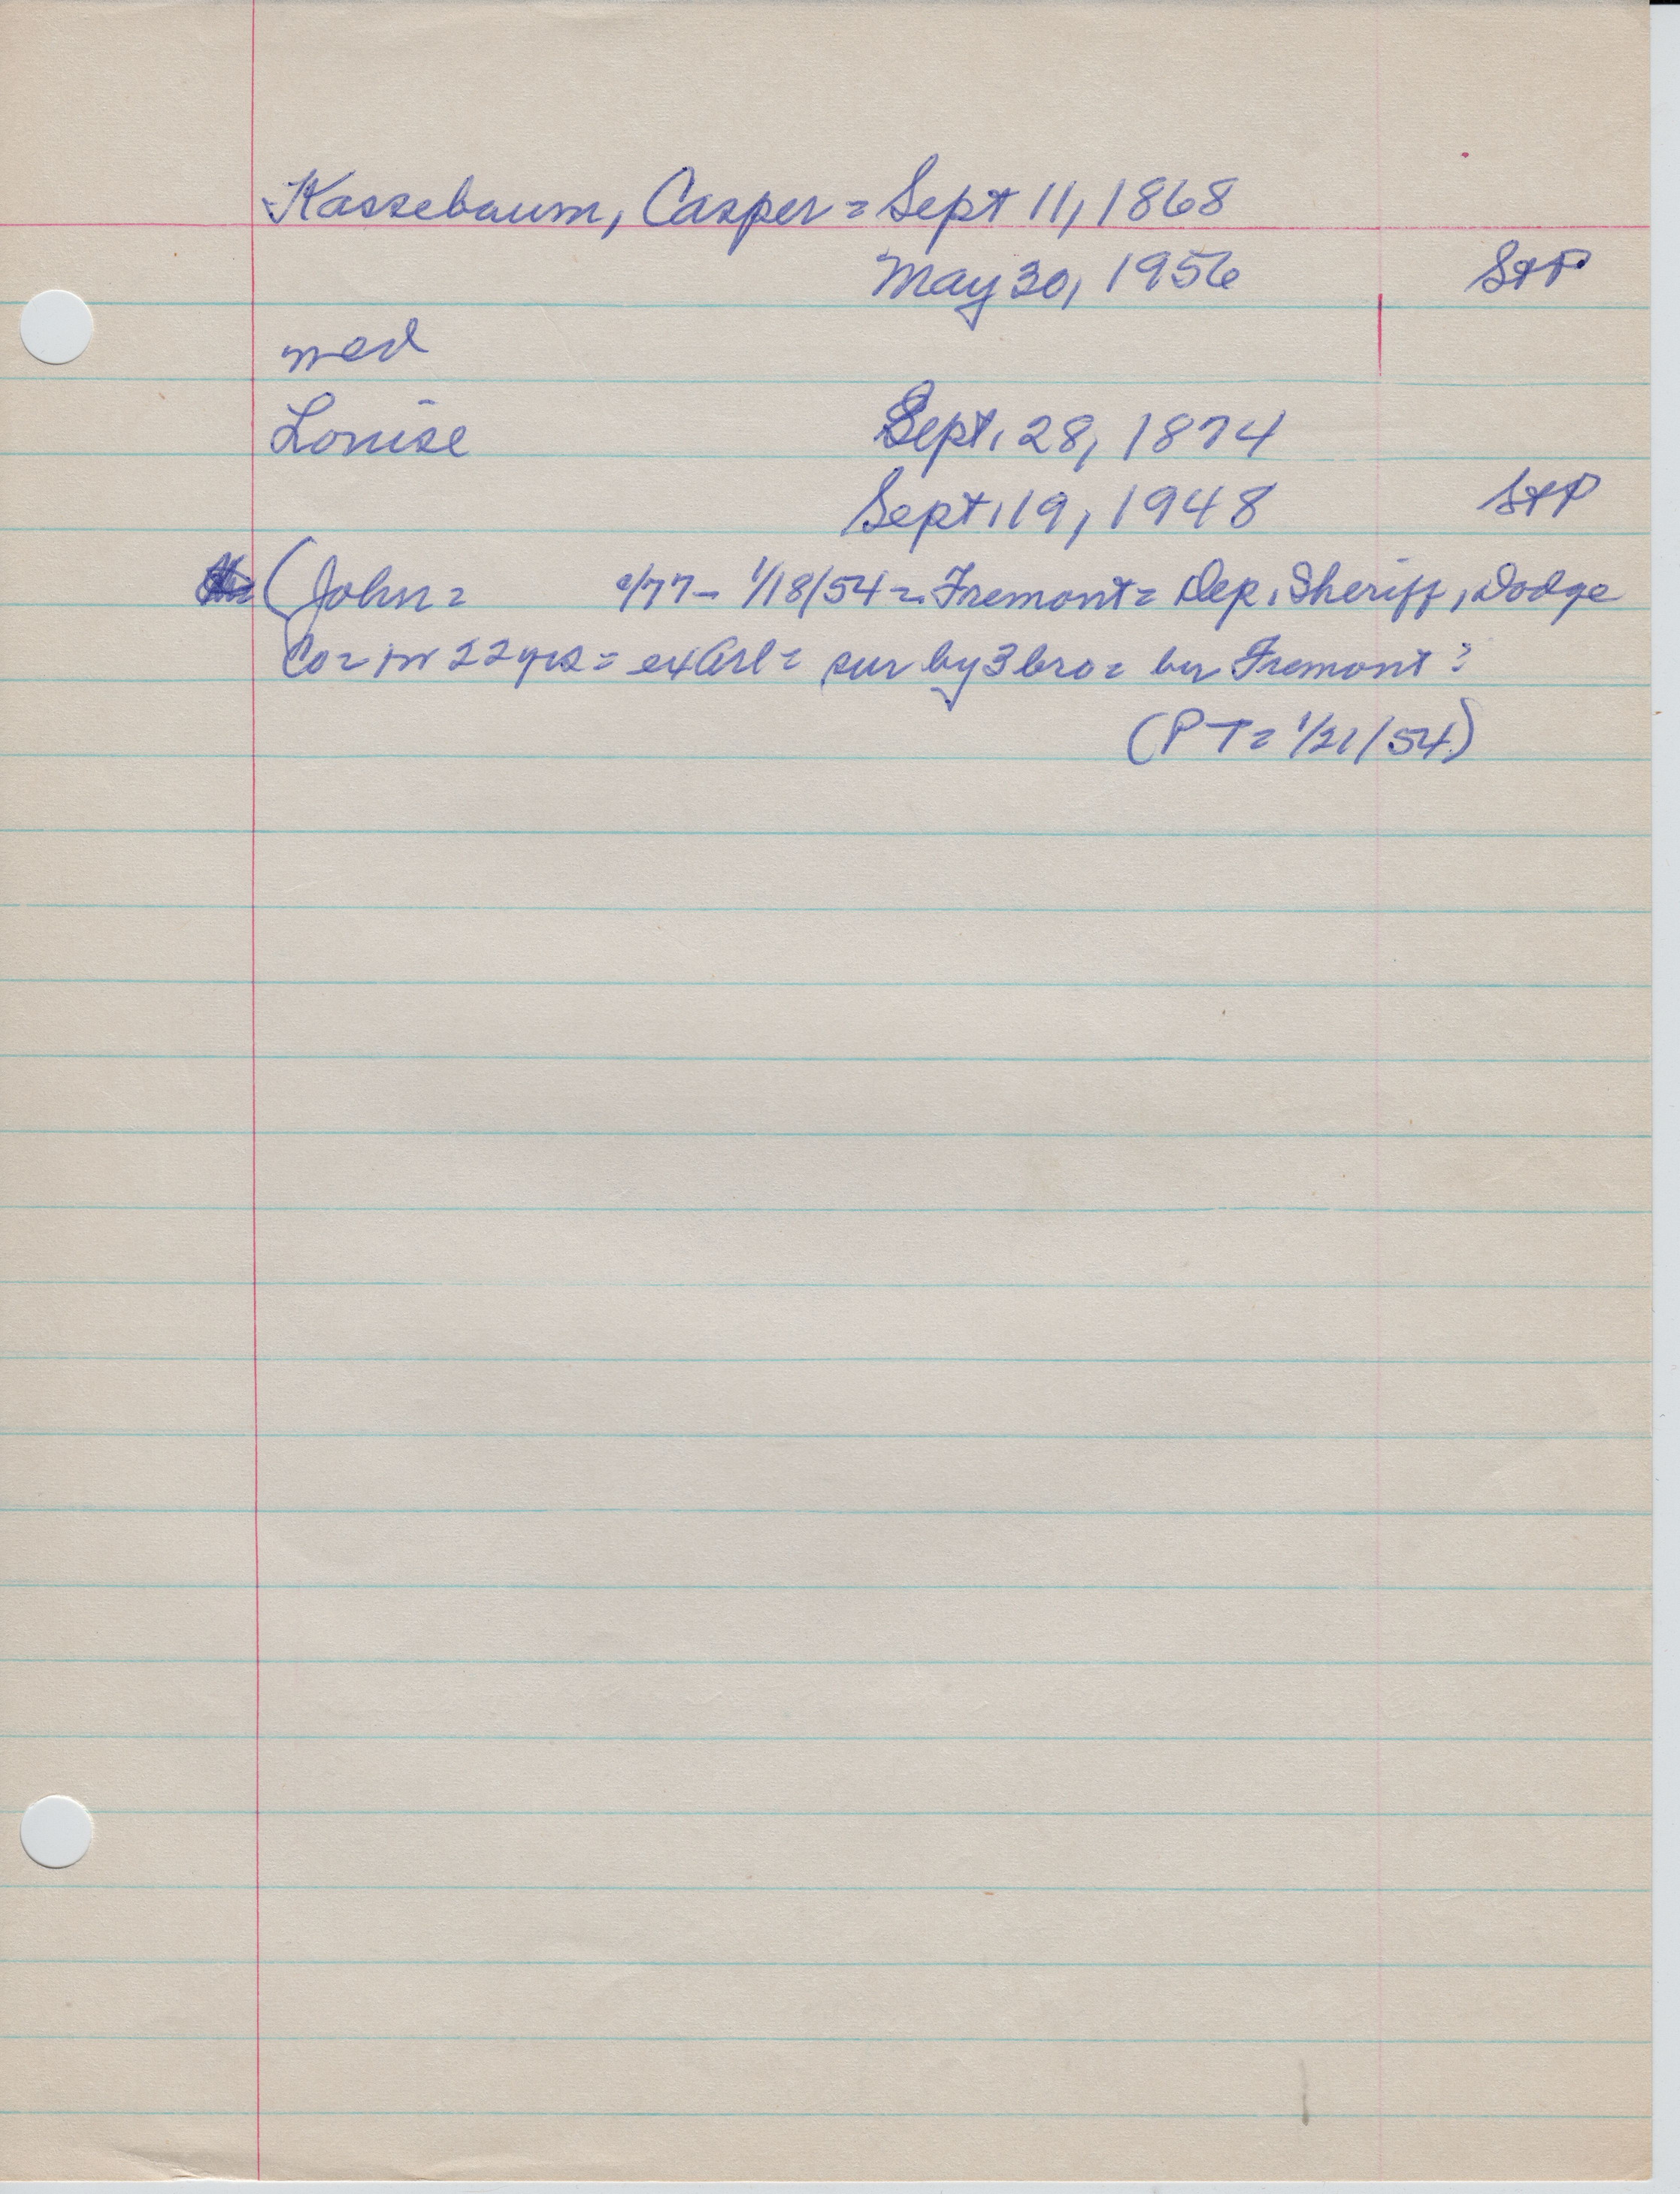 Kassebaum, Casper = Sept 11, 1868
May 30, 1956 StP
med
Louise Sept. 28, 1874
Sept. 19, 1948 StP
(John = /77 - 1/18/54 = Fremont = Dep. Sheriff, Dodge
Co = for 22 yrs = ex Arl = sur by 3 bro = bur Fremont =
(PT = 1/21/54)